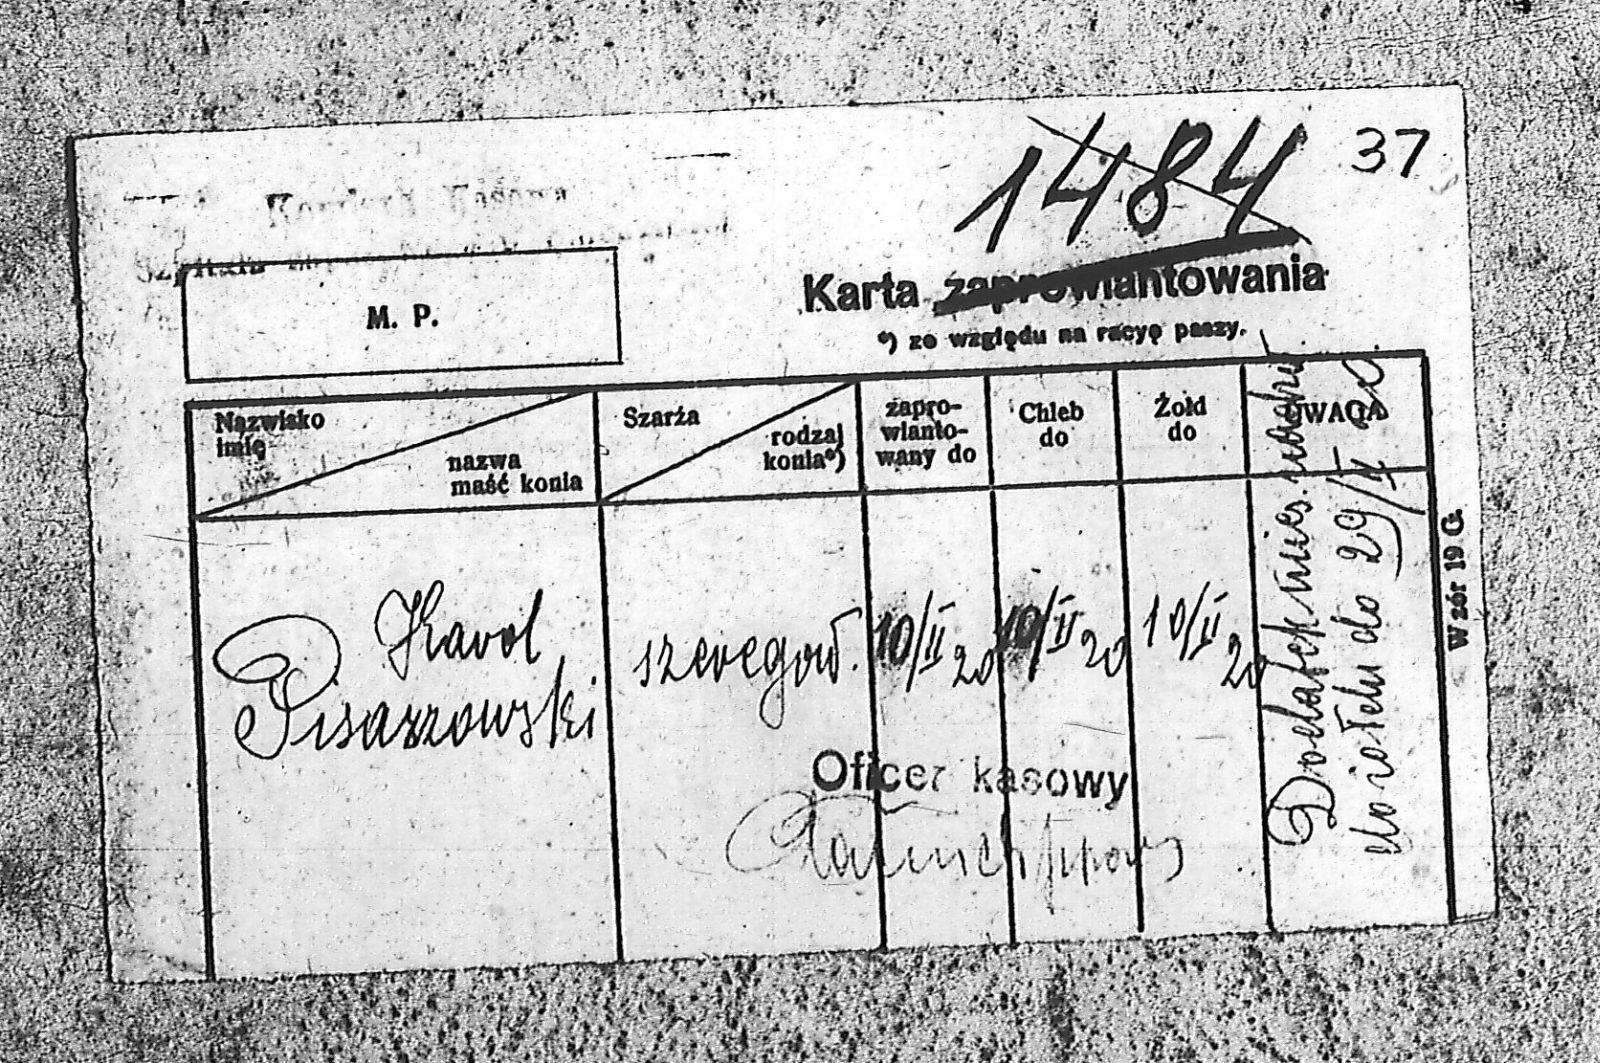 1484
37
Szpitala
M. P.
Karta zaprowiantowania
*) ze względu na racyę paszy.
Nazwisko
imię
nazwa
maść konia
Szarża
rodzaj
konia*)
zapro-
wianto-
wany do
Chleb
do
Żołd
do
UWAGA
Karol
Pisarzowski
szeregow.
10/II 20
10/II 20
10/II 20
Dodatek mies.
do 29/II 20
Oficer kasowy
Wzór 19 G.